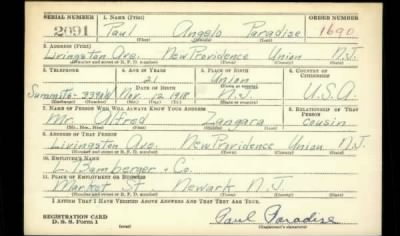 SERIAL NUMBER 1. NAME (Print) ORDER NUMBER
2091 Paul Angelo Paradise 1690
(First) (Middle) (Last)
2. ADDRESS (Print)
Livingston Ave. New Providence Union N.J.
(Number and street or R. F. D. number) (Town) (County) (State)
3. TELEPHONE 4. AGE IN YEARS 5. PLACE OF BIRTH 6. COUNTRY OF CITIZENSHIP
21 Union
DATE OF BIRTH
Summit 12 1918 N.J. U.S.A.
(Exchange) (Number) (Mo.) (Day) (Yr.) (State or country)
7. NAME OF PERSON WHO WILL ALWAYS KNOW YOUR ADDRESS 8. RELATIONSHIP OF THAT PERSON
Mr. Alfred Zangara cousin
(Mr., Mrs., Miss) (First) (Middle) (Last)
9. ADDRESS OF THAT PERSON
Livingston Ave. New Providence Union N.J.
(Number and street or R. F. D. number) (Town) (County) (State)
10. EMPLOYER'S NAME
L. Bamberger + Co.
11. PLACE OF EMPLOYMENT OR BUSINESS
Market St. Newark N.J.
(Number and street or R. F. D. number) (Town) (County) (State)
I AFFIRM THAT I HAVE VERIFIED ABOVE ANSWERS AND THAT THEY ARE TRUE.
REGISTRATION CARD
D. S. S. Form 1 Paul Paradise
(over) (Registrant's signature)